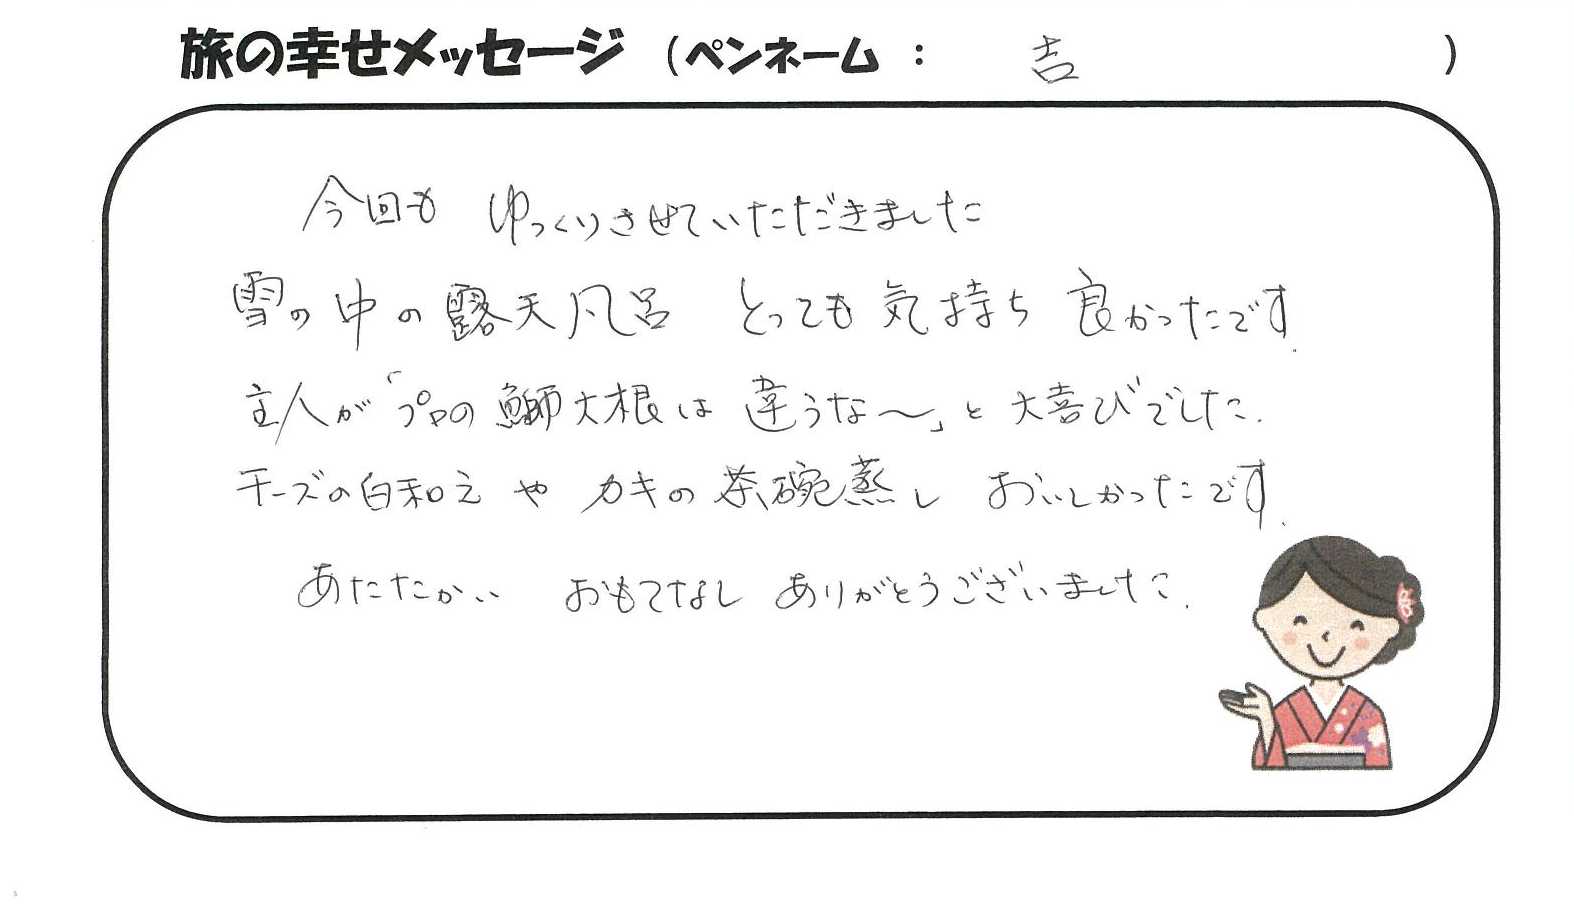 旅の幸せメッセージ（ペンネーム：吉）
今回も ゆっくりさせていただきました
雪の中の露天風呂 とっても気持ち良かったです.
主人が「プロの鰤大根は違うな〜」と大喜びでした.
チーズの白和えや カキの茶碗蒸し おいしかったです.
あたたかい おもてなし ありがとうございました.